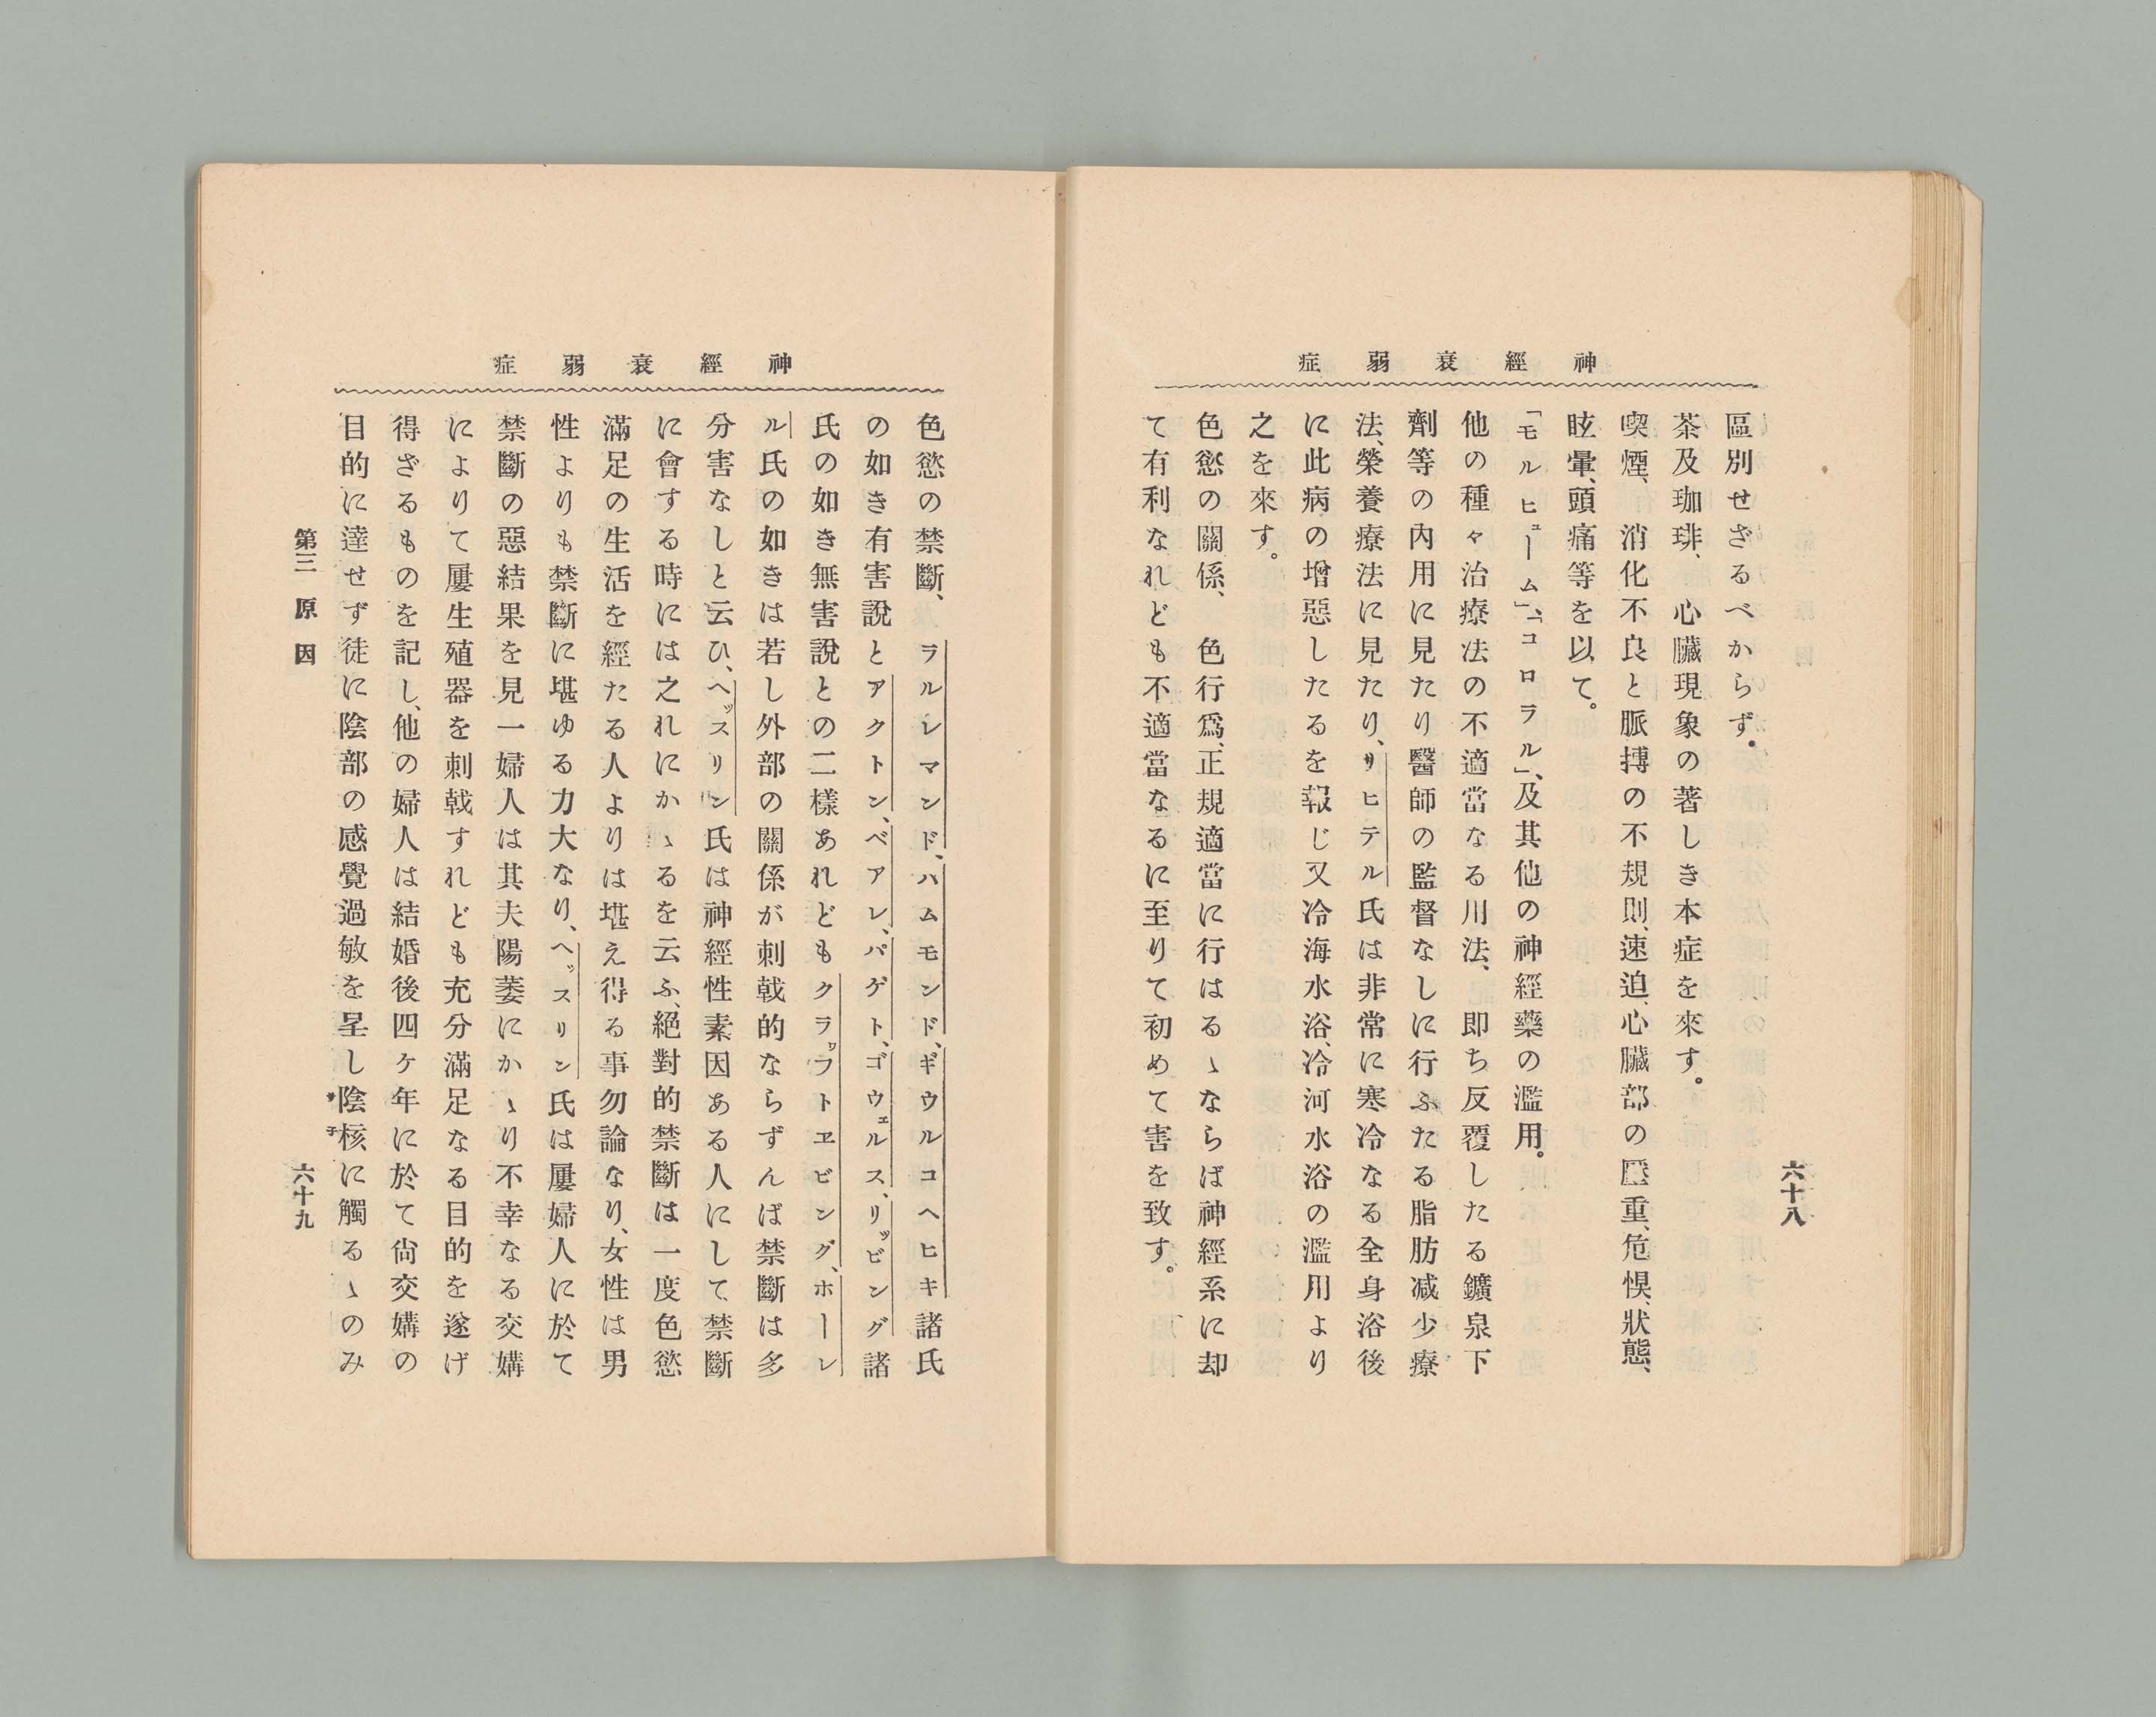 神經衰弱症
六十八
區別せざるべからず。
茶及珈琲、　心臟現象の著しき本症を來す。
喫煙、　消化不良と脈搏の不規則、速迫、心臟部の壓重、危惧、狀態、
眩暈、頭痛等を以て。
「モルヒューム」、「コロラル」、及其他の神經藥の濫用。
他の種々治療法の不適當なる川法、即ち反覆したる鑛泉下
劑等の內用に見たり醫師の監督なしに行ふたる脂肪减少療
法、榮養療法に見たり、リヒテル氏は非常に寒冷なる全身浴後
に此病の增惡したるを報じ又冷海水浴、冷河水浴の濫用より
之を來す。
色慾の關係、　色行爲、正規適當に行はるゝならば神經系に却
て有利なれども不適當なるに至りて初めて害を致す。
神經衰弱症
色慾の禁斷、　ラルレマンド、ハムモンド、ギウルコヘヒキ諸氏
の如き有害說とアクトン、ベアレ、パゲト、ゴウェルス、リッビング諸
氏の如き無害說との二樣あれどもクラッフトヱビング、ホーレ
ル氏の如きは若し外部の關係が刺戟的ならずんば禁斷は多
分害なしと云ひ、ヘッスリン氏は神經性素因ある人にして禁斷
に會する時には之れにかゝるを云ふ、絕對的禁斷は一度色慾
滿足の生活を經たる人よりは堪え得る事勿論なり、女性は男
性よりも禁斷に堪ゆる力大なり、ヘッスリン氏は屢婦人に於て
禁斷の惡結果を見一婦人は其夫陽萎にかゝり不幸なる交媾
によりて屢生殖器を刺戟すれども充分滿足なる目的を遂げ
得ざるものを記し、他の婦人は結婚後四ケ年に於て尙交媾の
目的に達せず徒に陰部の感覺過敏を呈し陰核に觸るゝのみ
第三　原因
六十九